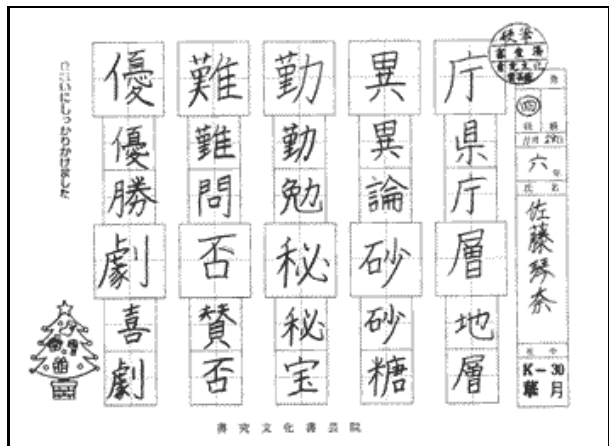 六年
氏名
佐藤琴奈
K-30
華月
庁
県庁
層
地層
異
異論
砂
砂糖
勤
勤勉
秘
秘宝
難
難問
否
賛否
優
優勝
劇
喜劇
いにしっかりかけました
書究文化書芸院